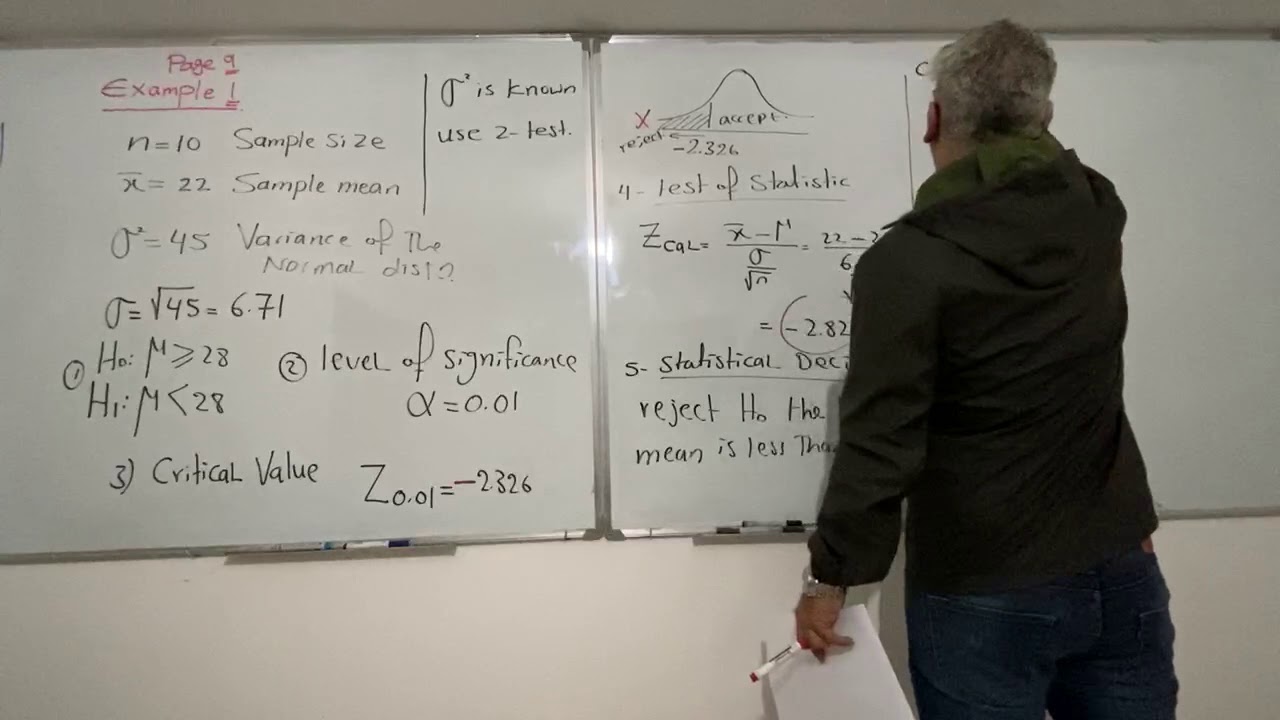 Page 9
Example 1
n=10 Sample size
x̄ = 22 Sample mean
σ² = 45 Variance of The
Normal dist?
σ = √45 = 6.71
① H₀: μ ≥ 28
H₁: μ < 28
② level of significance
α = 0.01
3) Critical Value Z0.01 = -2.326
σ² is known
use Z-test.
X accept.
reject ← -2.326
4- test of Statistic
Zcal = (x̄ - μ) / (σ/√n) = 22-2 / 6.
= -2.82
5- Statistical Deci
reject H₀ the
mean is less Tha